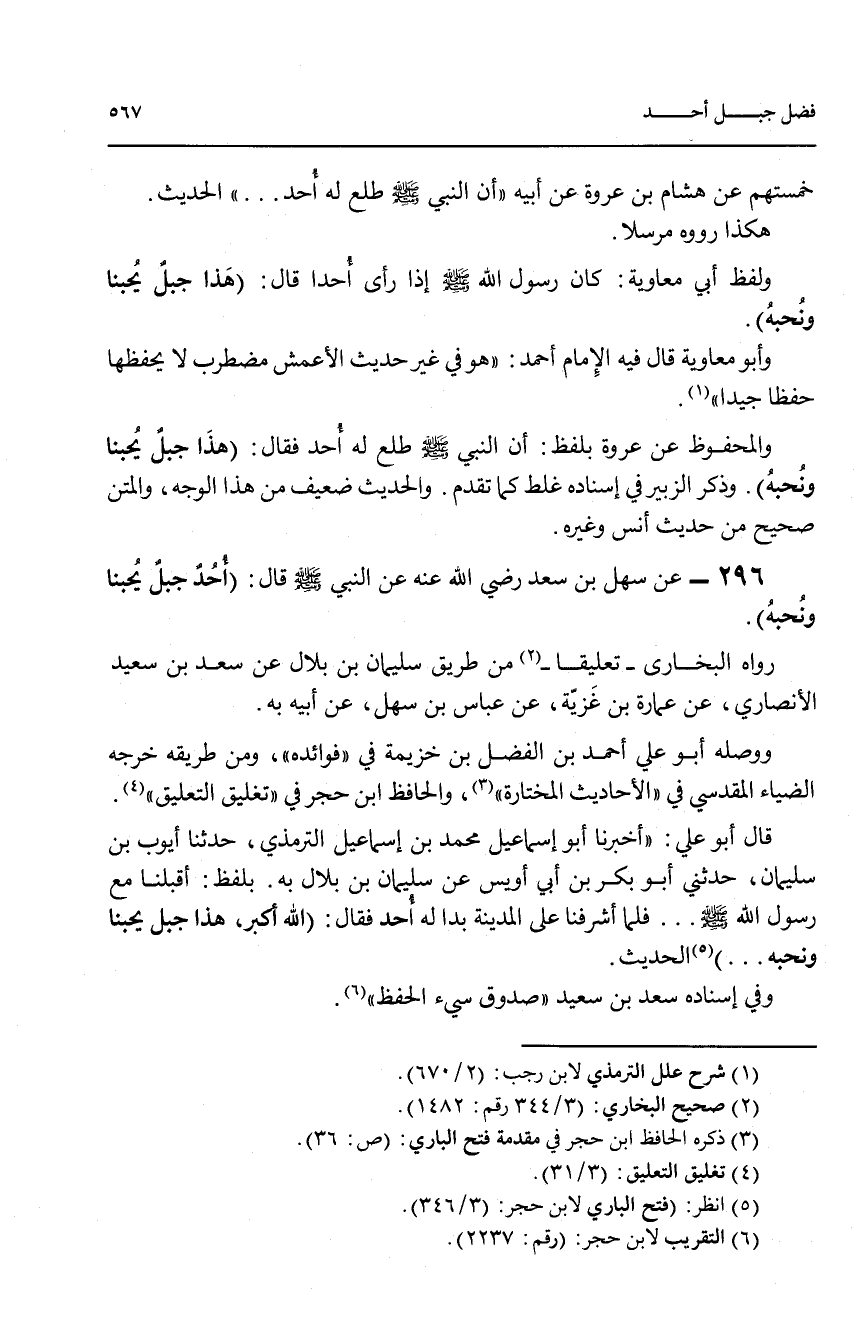 فضل جبـــــل أحـــــد ٥٦٧
خمستهم عن هشام بن عروة عن أبيه «أن النبي ﷺ طلع له أُحد. . .» الحديث.
هكذا رووه مرسلا.
ولفظ أبي معاوية: كان رسول الله ﷺ إذا رأى أُحدا قال: (هَذا جبلٌ يُحبنا
ونُحبهُ).
وأبو معاوية قال فيه الإمام أحمد: «هو في غير حديث الأعمش مضطرب لا يحفظها
حفظا جيدا»(١).
والمحفـوظ عن عروة بلفظ: أن النبي ﷺ طلع له أُحد فقال: (هذَا جبلٌ يُحبنا
ونُحبهُ). وذكر الزبير في إسناده غلط كما تقدم. والحديث ضعيف من هذا الوجه، والمتن
صحيح من حديث أنس وغيره.
٢٩٦ ـ عن سهل بن سعد رضي الله عنه عن النبي ﷺ قال: (أُحُدٌ جبلٌ يُحبنا
ونُحبهُ).
رواه البخـــارى ـ تعليقـــا ـ(٢) من طريق سليمان بن بلال عن سعـد بن سعيد
الأنصاري، عن عمارة بن غَزيّة، عن عباس بن سهل، عن أبيه به.
ووصله أبـو علي أحمـد بن الفضـل بن خزيمة في «فوائده»، ومن طريقه خرجه
الضياء المقدسي في «الأحاديث المختارة»(٣)، والحافظ ابن حجر في «تغليق التعليق»(٤).
قال أبو علي: «أخبرنا أبو إسماعيل محمد بن إسماعيل الترمذي، حدثنا أيوب بن
سليمان، حدثني أبـو بكـر بن أبي أويس عن سليمان بن بلال به. بلفظ: أقبلنـا مع
رسول الله ﷺ. . . فلما أشرفنا على المدينة بدا له أُحد فقال: (الله أكبر، هذا جبل يحبنا
ونحبه. . .)(٥)الحديث.
وفي إسناده سعد بن سعيد «صدوق سيء الحفظ»(٦).
(١) شرح علل الترمذي لابن رجب: (٢/ ٦٧٠).
(٢) صحيح البخاري: (٣/ ٣٤٤ رقم: ١٤٨٢).
(٣) ذكره الحافظ ابن حجر في مقدمة فتح الباري: (ص: ٣٦).
(٤) تغليق التعليق: (٣/ ٣١).
(٥) انظر: (فتح الباري لابن حجر: (٣/ ٣٤٦).
(٦) التقريب لابن حجر: (رقم: ٢٢٣٧).